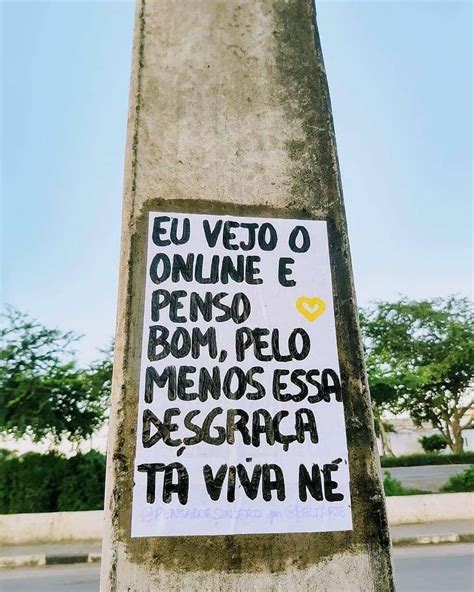 EU VEJO O
ONLINE E
PENSO
BOM, PELO
MENOS ESSA
DESGRAÇA
TÁ VIVA NÉ